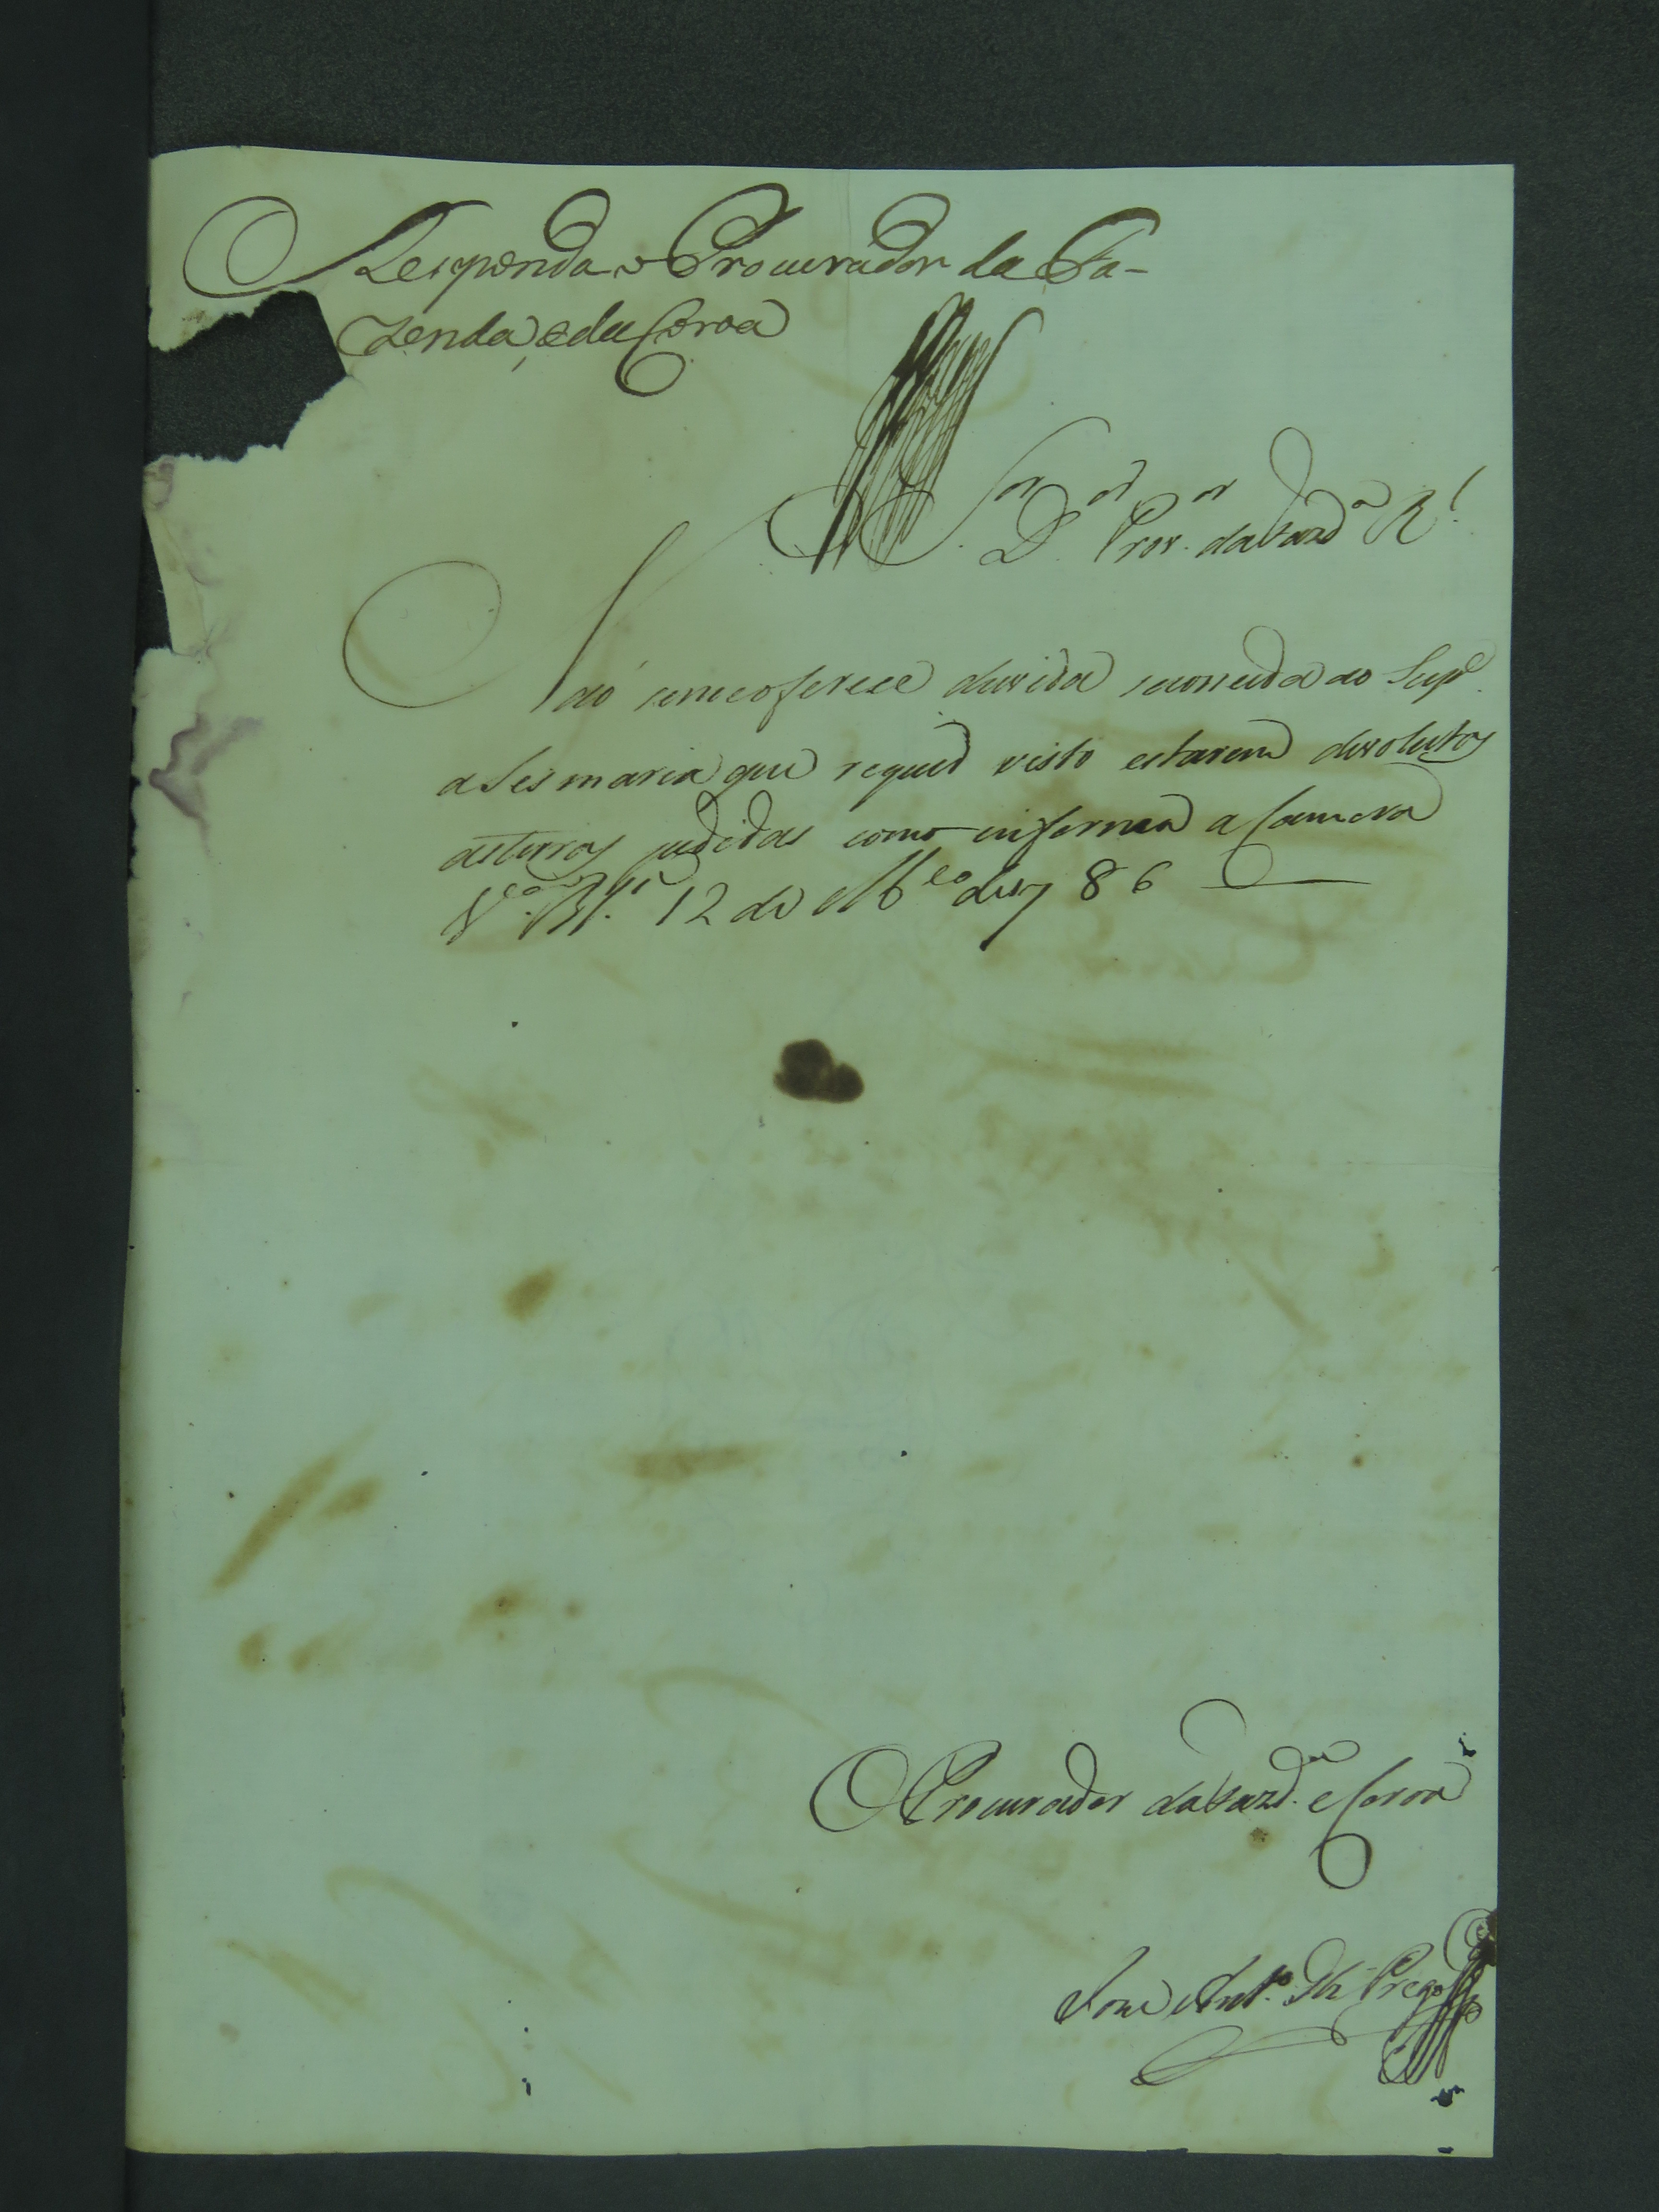 Responda o Procurador da Fa-
zenda, e da Coroa
Snr. Dor. Provor. da Fazda. Rl.
Não se me oferece duvida se conceda ao Supe.
a Sesmaria que requer visto estarem devolutas
as terras pedidas como informa a Camera
12 de de 786
O Procurador da Fazda. e Coroa
Joze Anto.